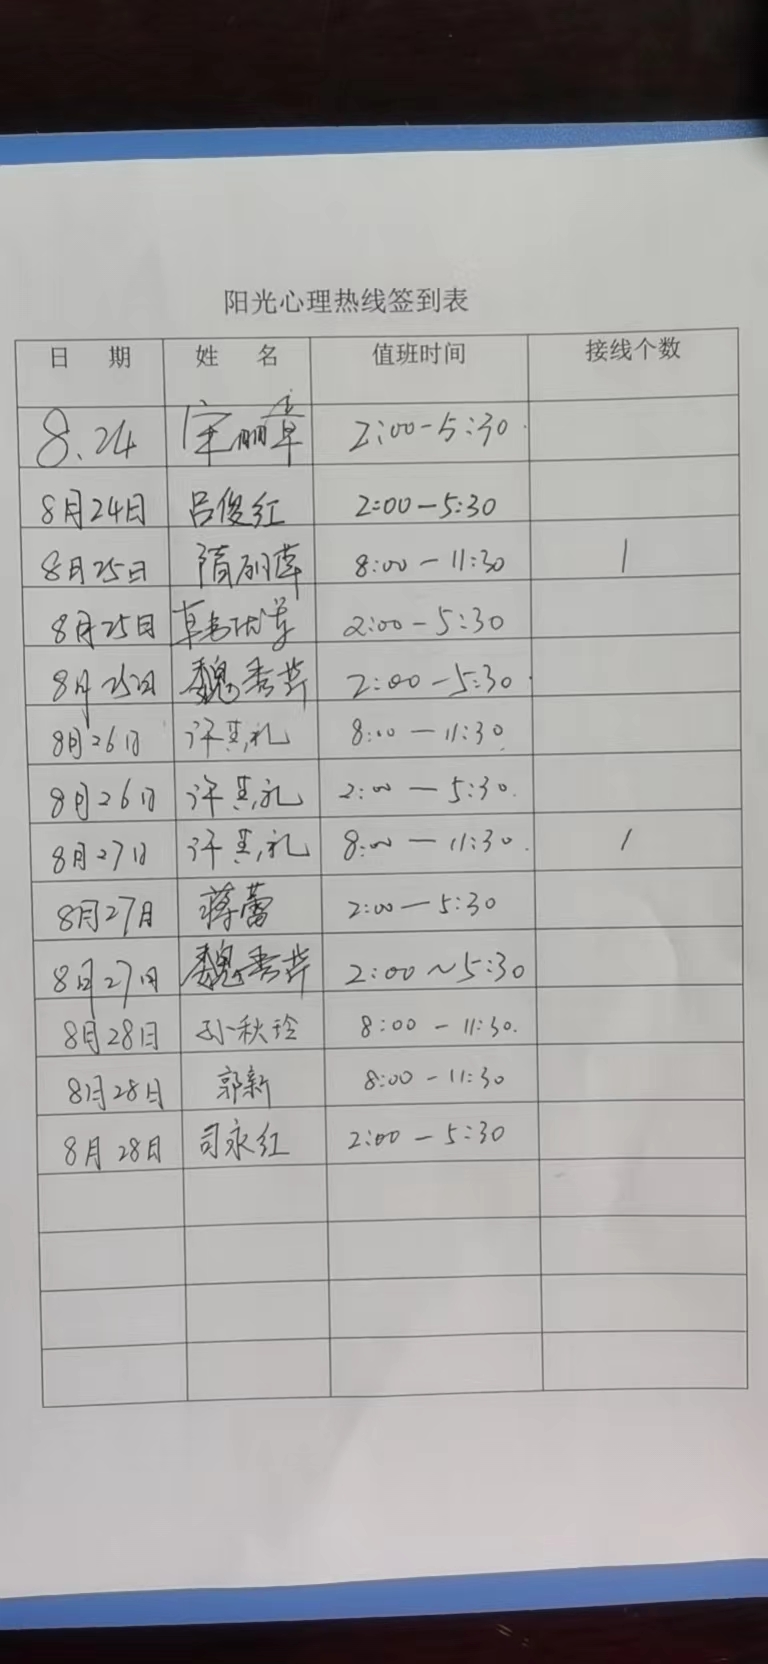 阳光心理热线签到表
日 期 姓 名 值班时间 接线个数
8.24 宋丽章 2:00-5:30
8月24日 吕俊红 2:00-5:30
8月25日 隋丽萍 8:00-11:30 1
8月25日 2:00-5:30
8月25日 魏秀萍 2:00-5:30
8月26日 8:00-11:30
8月26日 2:00-5:30.
8月27日 8:00-11:30. 1
8月27日 蒋蕾 2:00-5:30
8月27日 魏秀萍 2:00~5:30
8月28日 孙秋玲 8:00-11:30.
8月28日 郭新 8:00-11:30
8月28日 司永红 2:00-5:30